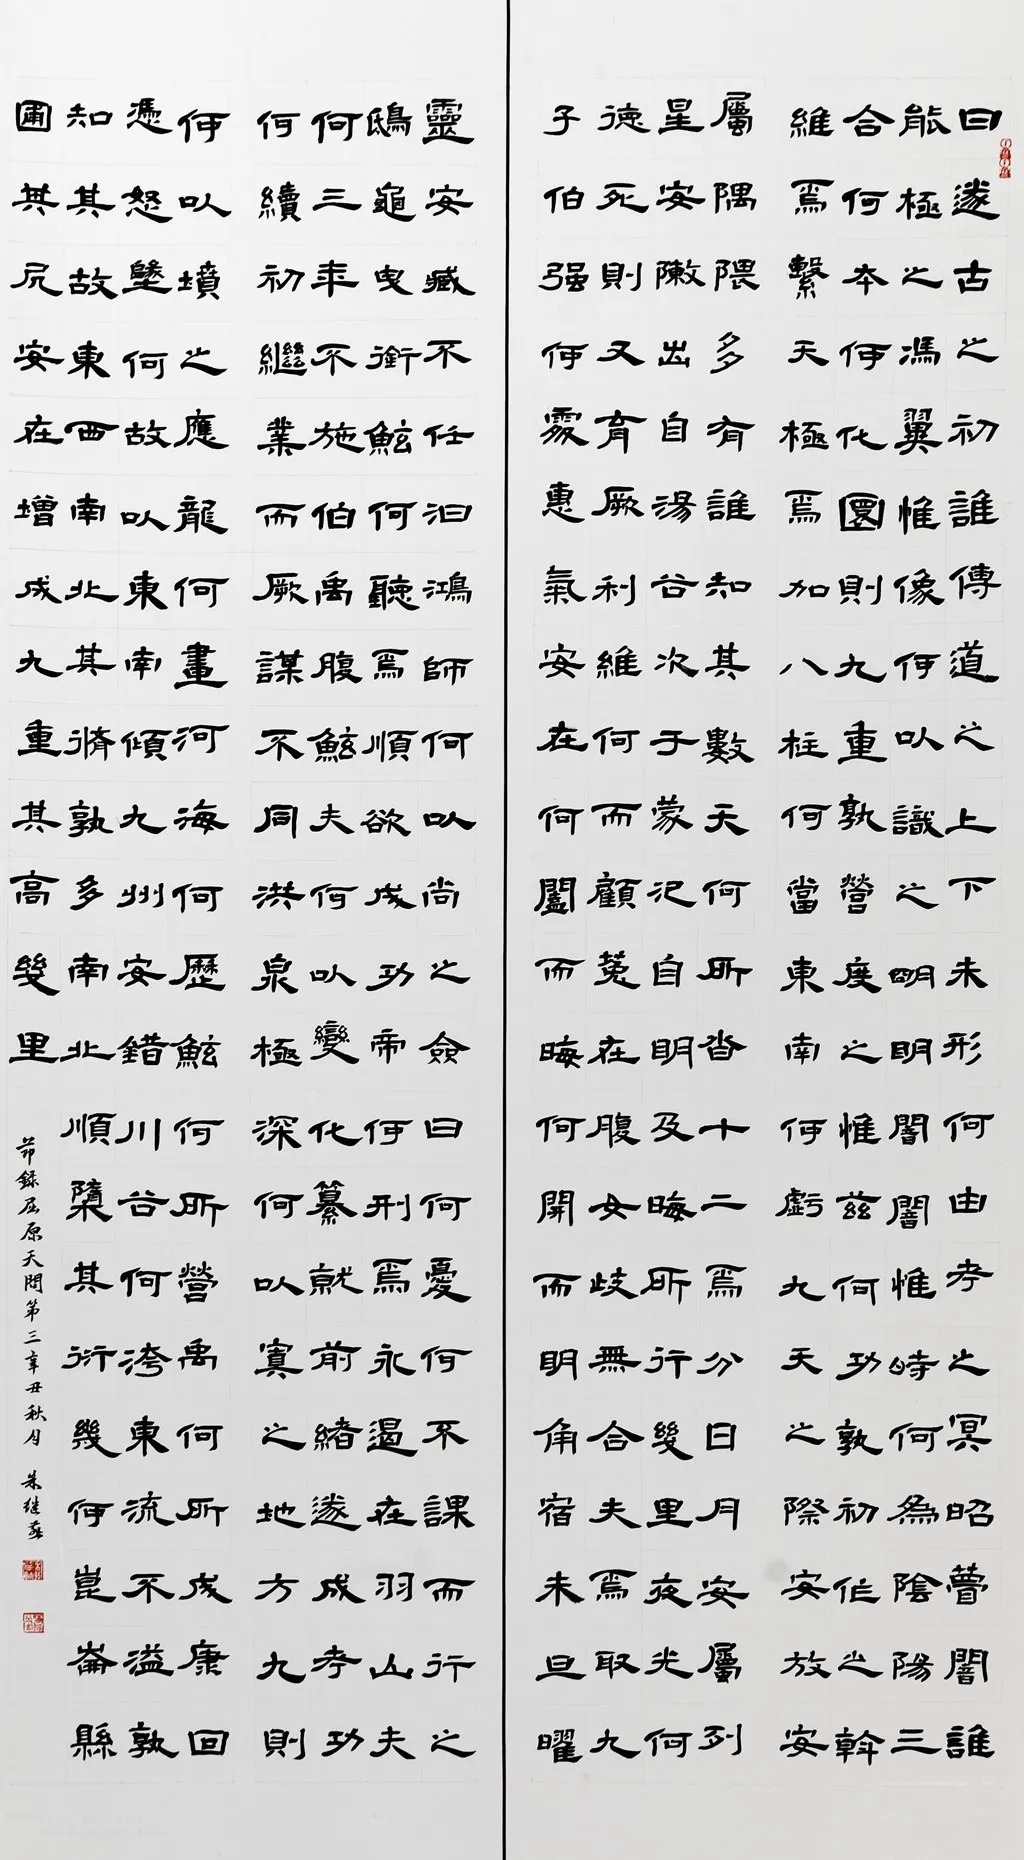 曰遂古之初誰傳道之上下未形何由考之冥昭瞢闇誰
能極之馮翼惟像何以識之明明闇闇惟時何為陰陽三
合何本何化圜則九重孰營度之惟茲何功孰初作之斡
維焉繫天極焉加八柱何當東南何虧九天之際安放安
屬隅隈多有誰知其數天何所沓十二焉分日月安屬列
星安陳出自湯谷次于蒙汜自明及晦所行幾里夜光何
德死則又育厥利維何而顧菟在腹女歧無合夫焉取九
子伯强何處惠氣安在何闔而晦何開而明角宿未旦曜
靈安臧不任汩鴻師何以尚之僉曰何憂何不課而行之
鴟龜曳銜鮌何聽焉順欲成功帝何刑焉永遏在羽山夫
何三年不施伯禹腹鮌夫何以變化纂就前緒遂成考功
何續初繼業而厥謀不同洪泉極深何以寘之地方九則
何以墳之應龍何畫河海何歷鮌何所營禹何所成康回
憑怒墜何故以東南傾九州安錯川谷何洿東流不溢孰
知其故東西南北其脩孰多南北順橢其衍幾何崑崙縣
圃其尻安在增成九重其高幾里
節錄屈原天問第三辛丑秋月 朱继英